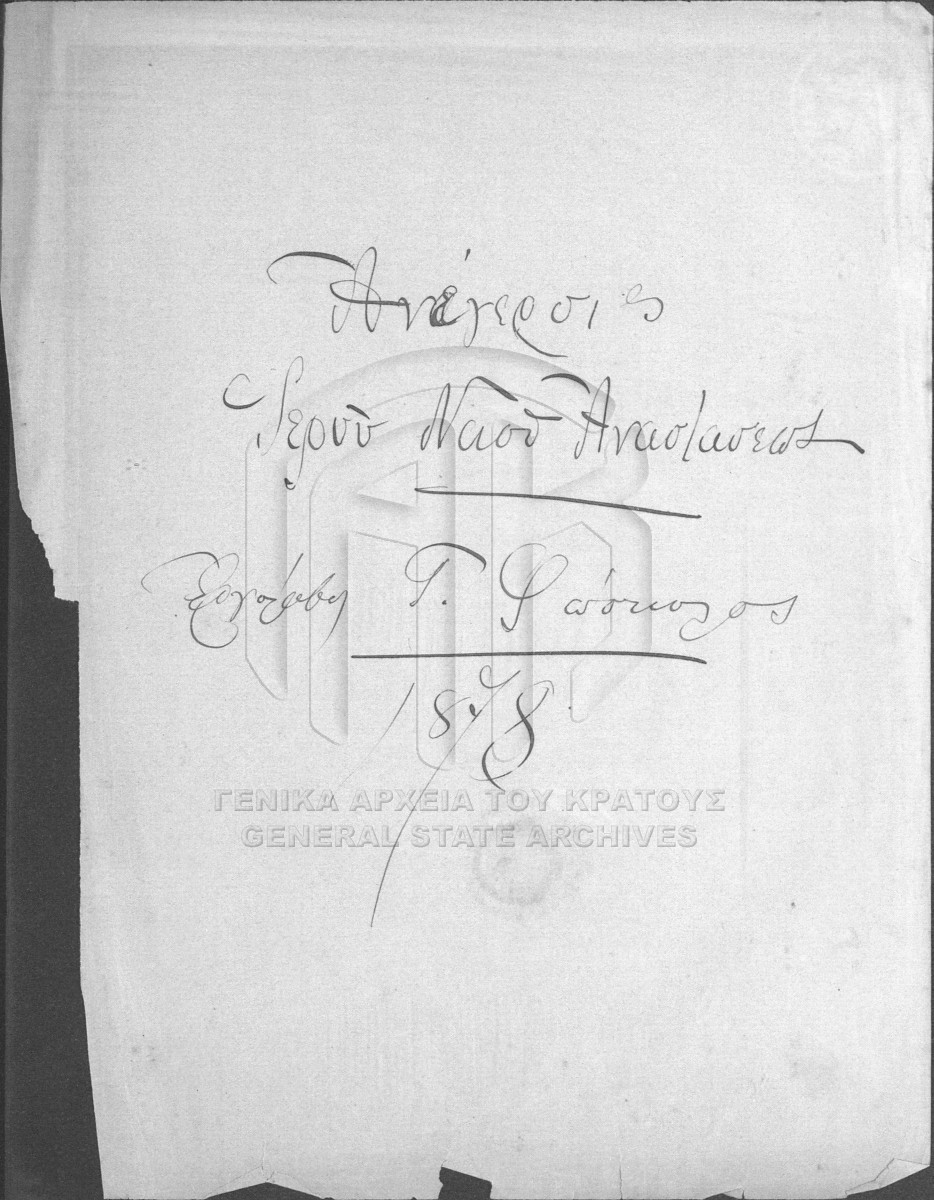 Ἀνέγερσις
Ἱεροῦ Ναοῦ Ἀναστάσεως
Ἐργολάβος Γ. Φώσκολος
1878
ΓΕΝΙΚΑ ΑΡΧΕΙΑ ΤΟΥ ΚΡΑΤΟΥΣ
GENERAL STATE ARCHIVES